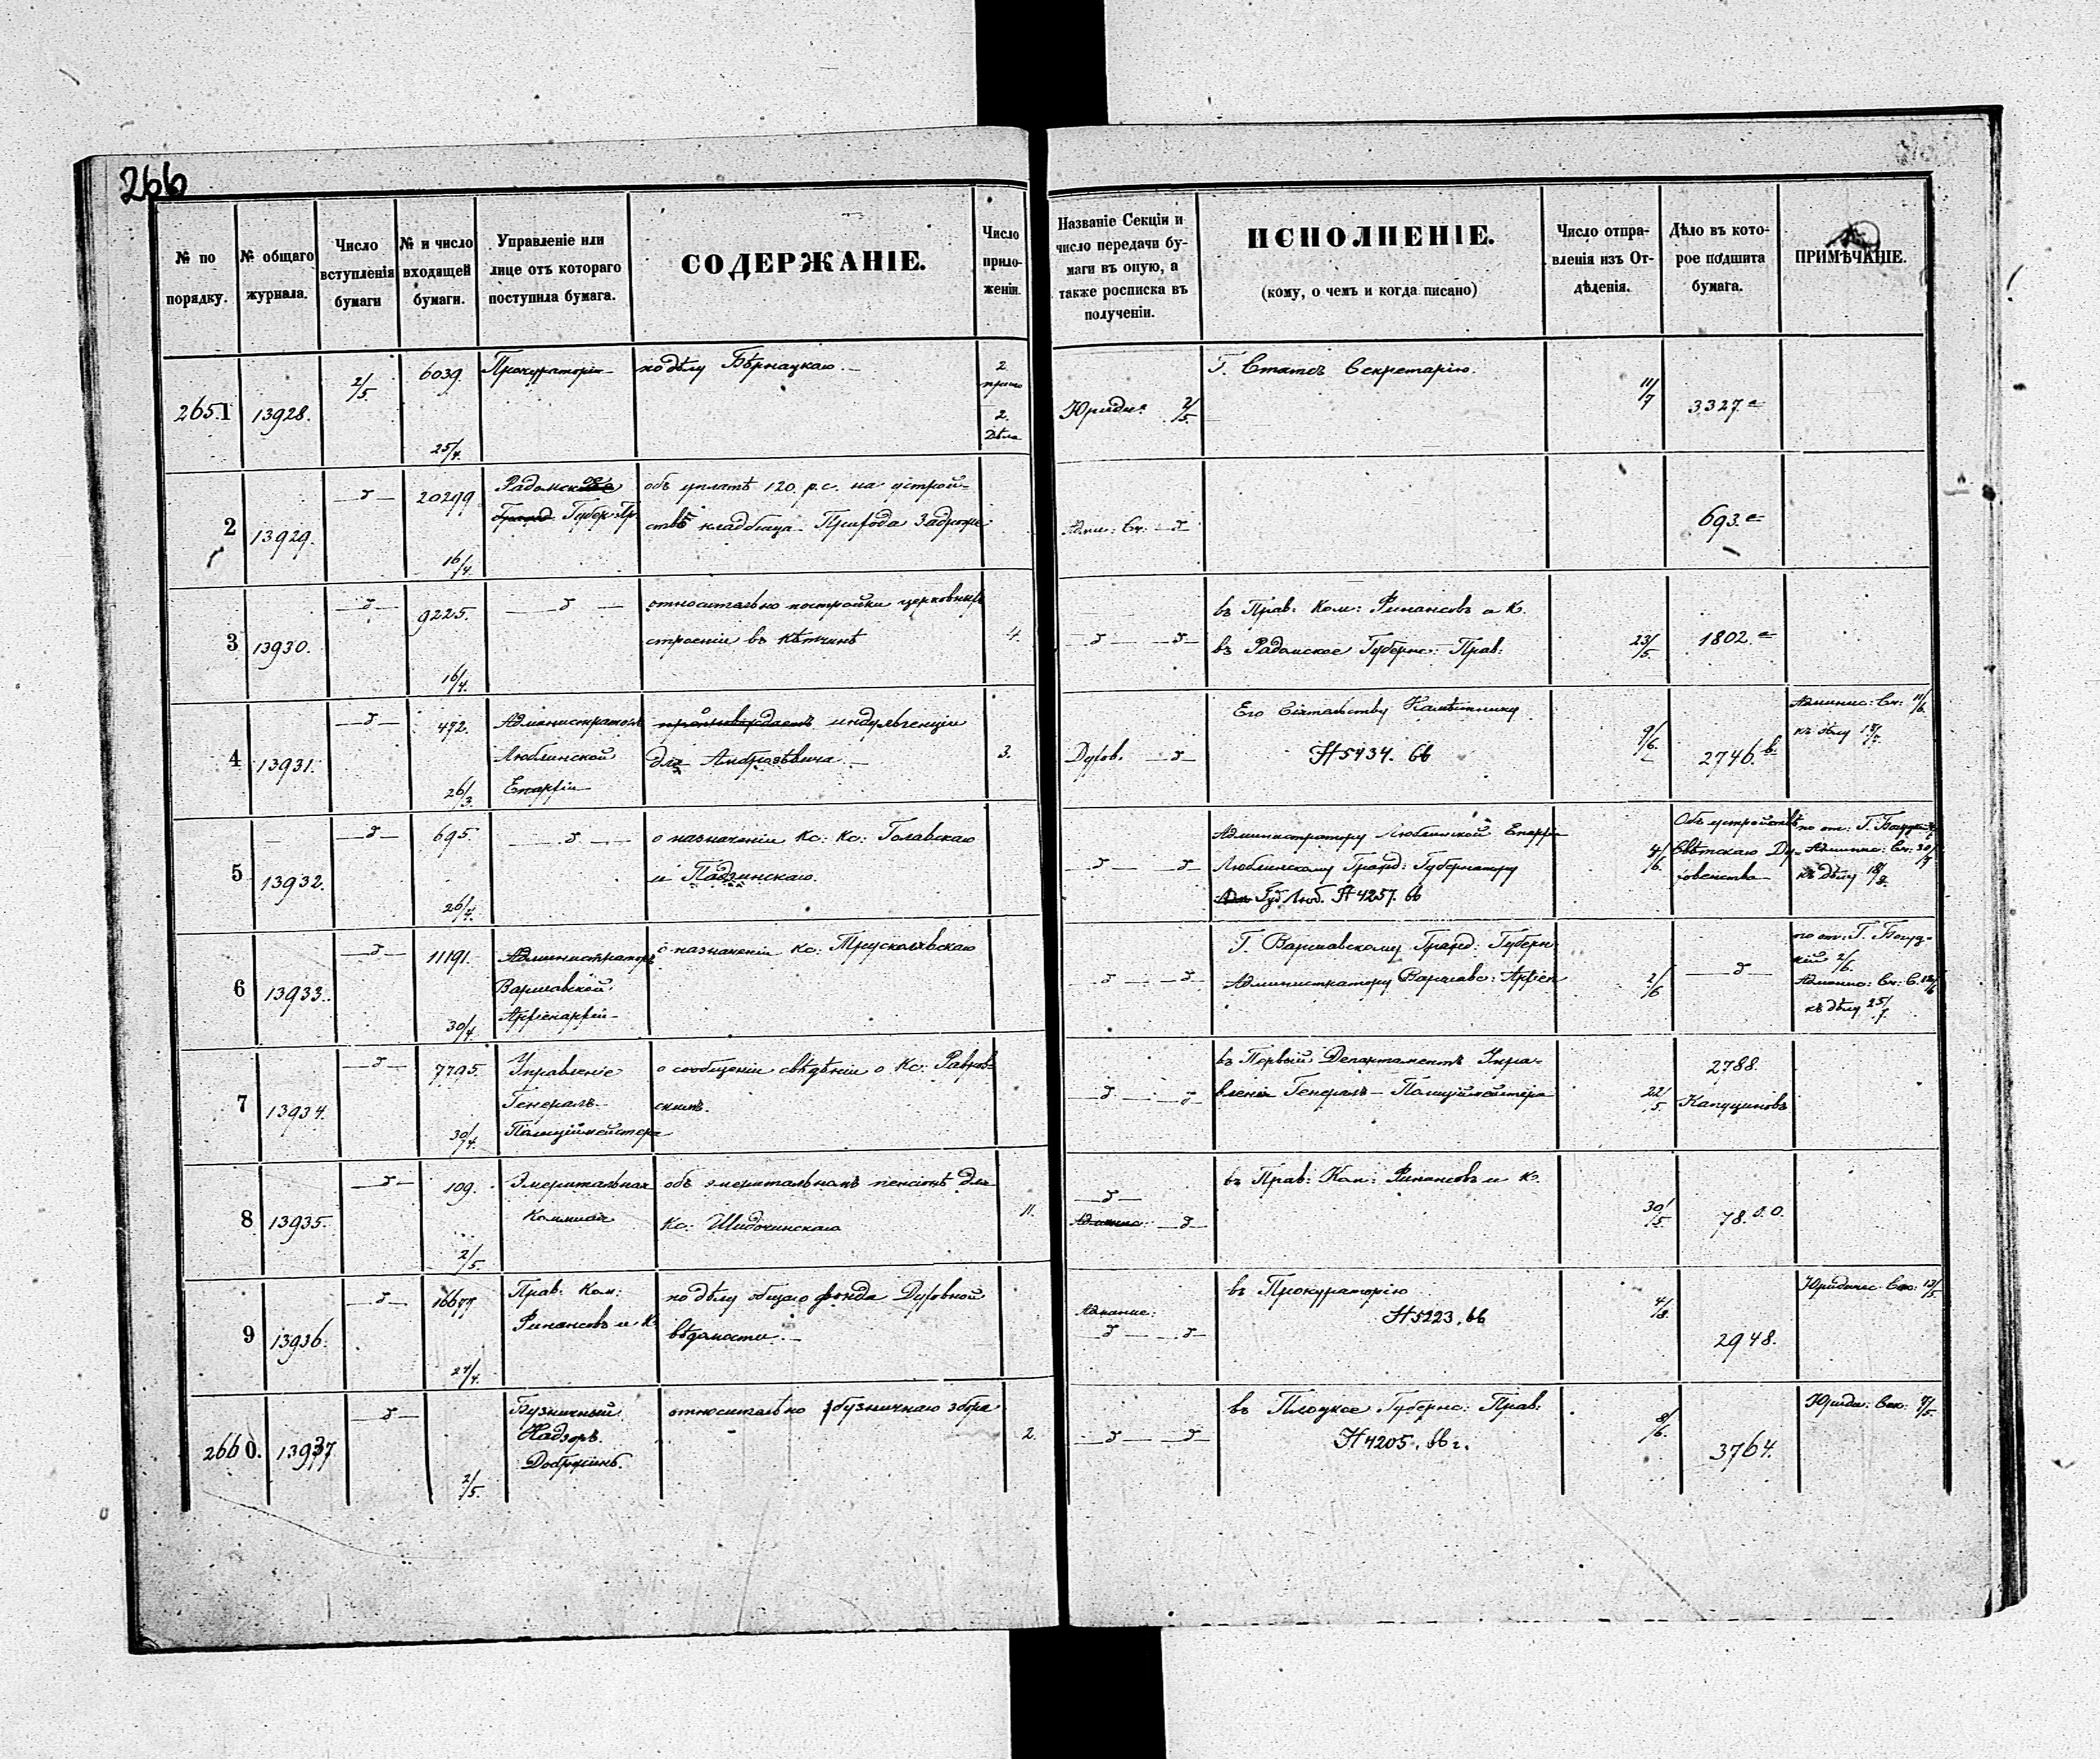 266
№ по порядку.
№ общаго журнала.
Число вступленія бумаги
№ и число входящей бумаги.
Управленіе или лице отъ котораго поступила бумага.
СОДЕРЖАНІЕ.
Число приложеніи.
Названіе Секціи и число передачи бумаги въ оную, а также росписка въ полученіи.
ИСПОЛНЕНІЕ.
(кому, о чемъ и когда писано)
Число отправленія изъ Отдѣленія.
Дѣло въ которое подшита бумага.
ПРИМѢЧАНІЕ.
2651 13928. 2/5 6039. 25/4. Прокураторія по дѣлу Бѣрнацкаго. 2 2. Дѣла
Юриди: 2/5. Г. Статсъ Секретарію. 11/7 3327. е
2 13929. 20299 16/4. Радомское Губер: Пр.
объ уплатѣ 120. р. с. на устрой-
ствѣ кладбища Прихода
693. е
3 13930. 9225. 16/4.
относительно постройки церковныхъ
строеніи въ 4.
въ Прав: Ком: Финансовъ и К.
въ Радомское Губернс: Прав: 23/5. 1802 е
4 13931. 472. 26/3. Администраторъ
Люблинской
Епархіи
индульгенціи
для 3.
Духов.
Его Сіятельству Намѣстнику
№ 5434. 66 9/6. 2746. в.
Админис: Сек: 11/6.
къ дѣлу
5 13932. 695. 26/4.
о назначеніи Кс: Кс: Голавскаго
и
Администратору Люблинской Епархіи
Люблинскому Гражд: Губернатору
№ 4257. 66 4/6.
Объ устройствѣ
Свѣтскаго Ду-
ховенства
къ дѣлу 18/8.
6 13933. 11191. 30/4. Администраторъ
Варшавской
Архіепархіи
о назначеніи Кс:
Г. Варшавскому Гражд: Губерн
Администратору Варшавс: Архіеп 2/6
къ дѣлу 25/7.
7 13934. 7795. 30/4. Управленіе
Генералъ-
Полиціймейстера
о сообщеніи свѣдѣніи о Кс: Равков-
скимъ.
въ Первый Департаментъ Упра-
вленія Генералъ-Полиціймейстера 22/5. 2788.
Капуциновъ
8 13935. 109. 2/5. Эмеритальная
Коммисія
объ эмеритальномъ пенсіонѣ для
Кс: 11.
въ Прав: Ком: Финансовъ и К. 30/5. 78. О. О.
9 13936. 16677 27/4. Прав: Ком:
Финансовъ и К.
по дѣлу общаго фонда Духовной
вѣдомости.
въ Прокураторію
№ 5223. 66 4/8. 2948.
Юридичес: Сек: 12/5
2660. 13937 2/5. Бузничный
Надзоръ
Добржинъ.
относительно бузничнаго збора 2.
въ Плоцкое Губернс: Прав:
№ 4205. 66 г. 8/6. 3764.
Юриди: Сек: